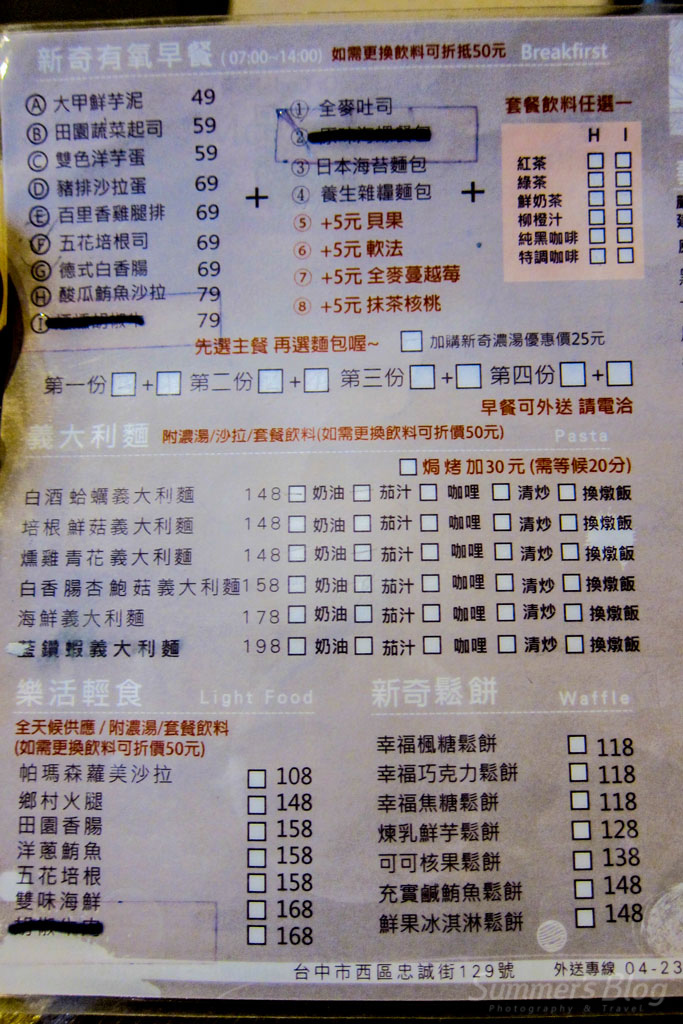 新奇有氧早餐 (07:00~14:00) 如需更換飲料可折抵50元 Breakfirst
Ⓐ 大甲鮮芋泥 49
Ⓑ 田園蔬菜起司 59
Ⓒ 雙色洋芋蛋 59
Ⓓ 豬排沙拉蛋 69
Ⓔ 百里香雞腿排 69
Ⓕ 五花培根司 69
Ⓖ 德式白香腸 69
Ⓗ 酸瓜鮪魚沙拉 79
Ⓘ 79
+
① 全麥吐司
②
③ 日本海苔麵包
④ 養生雜糧麵包
⑤ +5元 貝果
⑥ +5元 軟法
⑦ +5元 全麥蔓越莓
⑧ +5元 抹茶核桃
+
套餐飲料任選一
H I
紅茶
綠茶
鮮奶茶
柳橙汁
純黑咖啡
特調咖啡
先選主餐 再選麵包喔~ 加購新奇濃湯優惠價25元
第一份 + 第二份 + 第三份 + 第四份 +
早餐可外送 請電洽
義大利麵 附濃湯/沙拉/套餐飲料(如需更換飲料可折價50元) Pasta
焗烤加30元(需等候20分)
白酒蛤蠣義大利麵 148 奶油 茄汁 咖哩 清炒 換燉飯
培根鮮菇義大利麵 148 奶油 茄汁 咖哩 清炒 換燉飯
燻雞青花義大利麵 148 奶油 茄汁 咖哩 清炒 換燉飯
白香腸杏鮑菇義大利麵 158 奶油 茄汁 咖哩 清炒 換燉飯
海鮮義大利麵 178 奶油 茄汁 咖哩 清炒 換燉飯
藍鑽蝦義大利麵 198 奶油 茄汁 咖哩 清炒 換燉飯
樂活輕食 Light Food
全天候供應/附濃湯/套餐飲料
(如需更換飲料可折價50元)
帕瑪森蘿美沙拉 108
鄉村火腿 148
田園香腸 158
洋蔥鮪魚 158
五花培根 158
雙味海鮮 168
168
新奇鬆餅 Waffle
幸福楓糖鬆餅 118
幸福巧克力鬆餅 118
幸福焦糖鬆餅 118
煉乳鮮芋鬆餅 128
可可核果鬆餅 138
充實鹹鮪魚鬆餅 148
鮮果冰淇淋鬆餅 148
台中市西區忠誠街129號 外送專線 04-23
Summers Blog
Photography & Travel